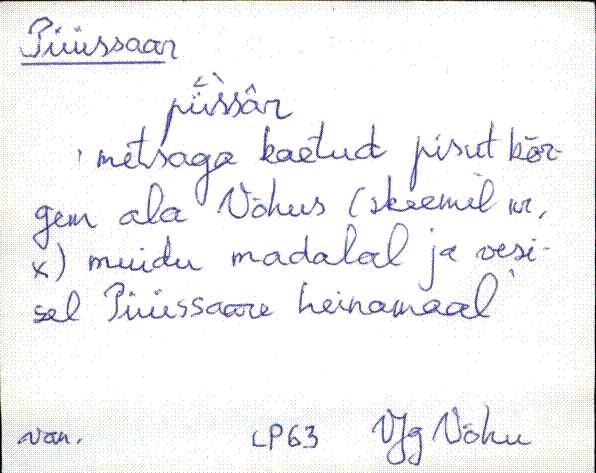 Püüssaar
pǖssār
'metsaga kaetud pisut kõr-
gem ala Võhus (skeemil nr.
x) muidu madalal ja vesi-
sel Püüssaare heinamaal'
van. LP63 VJg Võhu